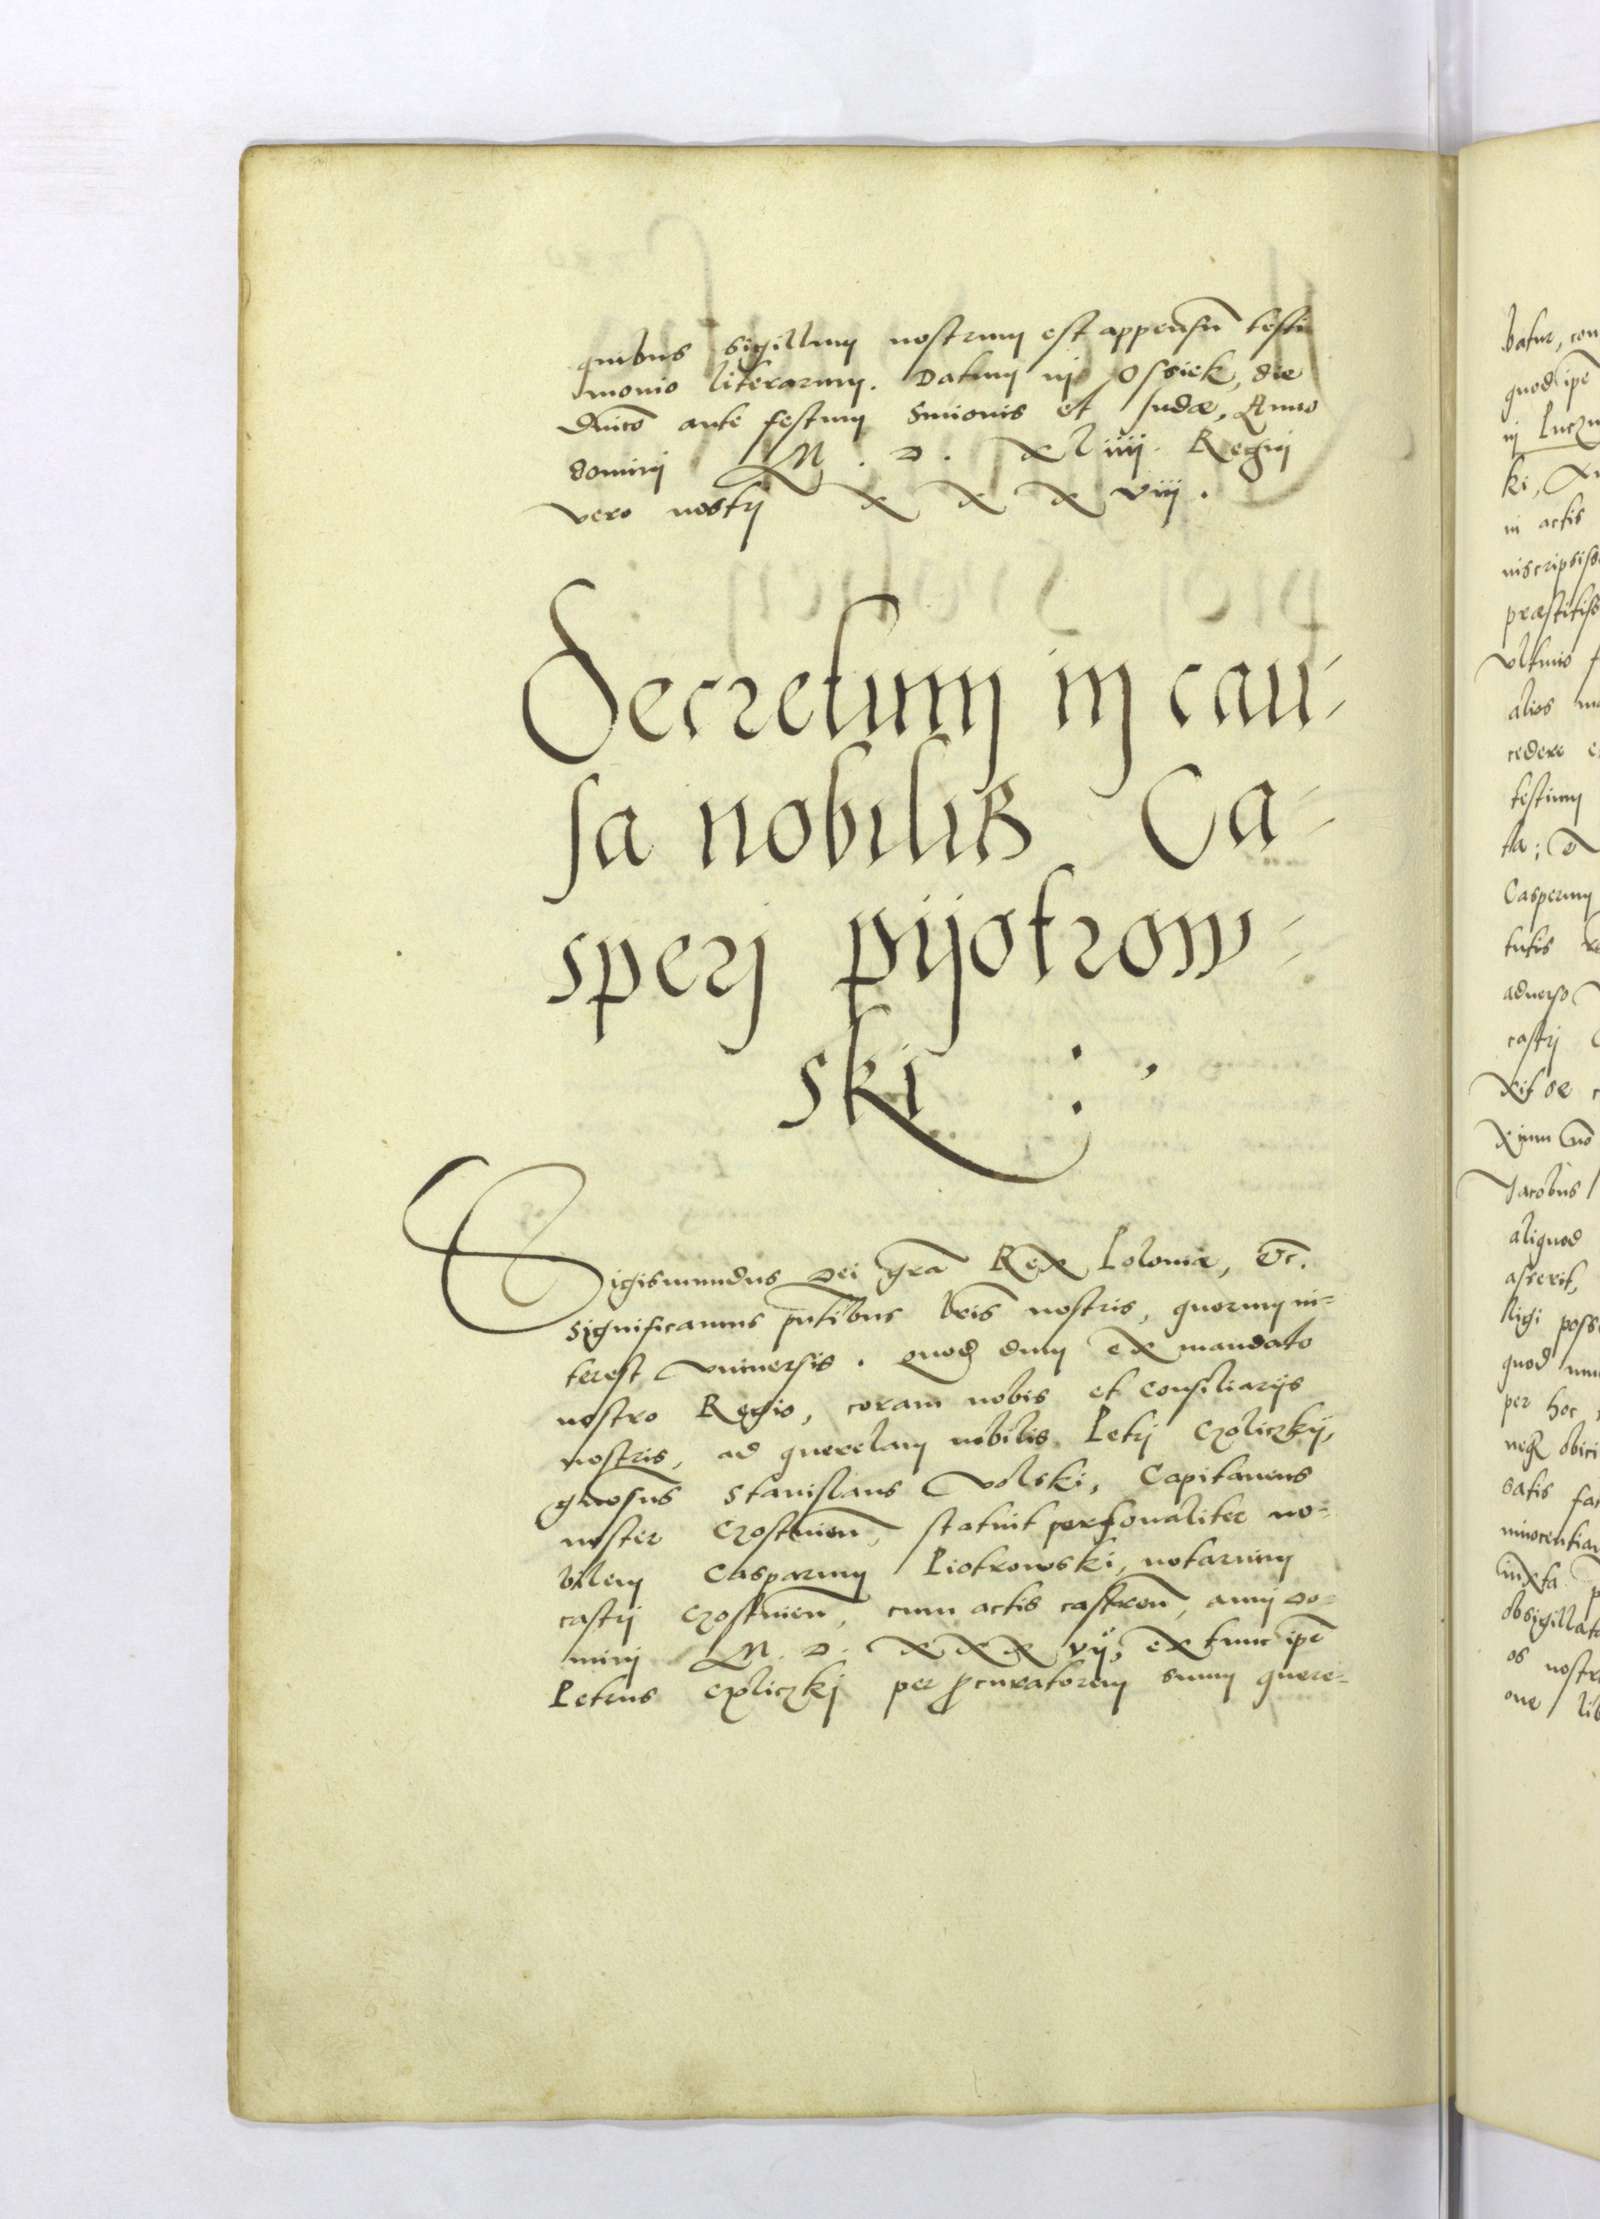 quibus sigillum nostrum est appensũ testi
monio literarum. Datum in Ossiek, die
Dnico ante festum Simonis et Judæ, Anno
domini M. D. xliiij. Regni
vero nostri xxxviij.
Decretum in cau-
sa nobilis Ca-
sperj pijotrow-
ski :,
Sigismundus Dei gra Rex Poloniæ, &c.
Significamus pntibus lris nostris, quorum in-
terest vniuersis. Quod dum ex mandato
nostro Regio, coram nobis et consiliarijs
nostris, ad querelam nobilis Petri
gnosus Stanislaus Volski, Capitaneus
noster statuit personaliter no-
bilem Casparum Piotrowski, notarium
castri cum actis castreñ, anni do-
mini M. D. xxxvij, ex tunc ipe
Petrus per procuratorem suum quere-
batur, con
quod ipe
in
ki,
in actis
inscripsiss
præstitiss
vltimis
alios
cedere
testium
ta;
Casperum
tutis
aduerso
castri
Jacobus
aliquod
asserit,
ligi poss
quod
per hoc
neq obici
satis
innocentiam
iuxta
obsigillat
os nostr
one lib